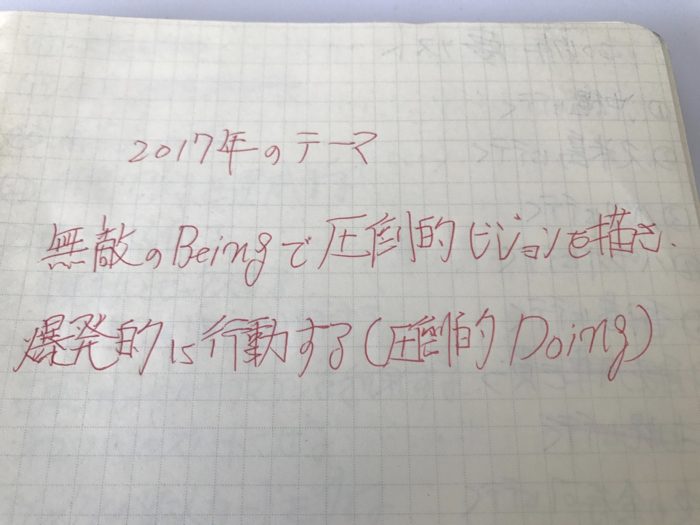 2017年のテーマ
無敵のBeingで圧倒的ビジョンを描き、
爆発的に行動する(圧倒的Doing)